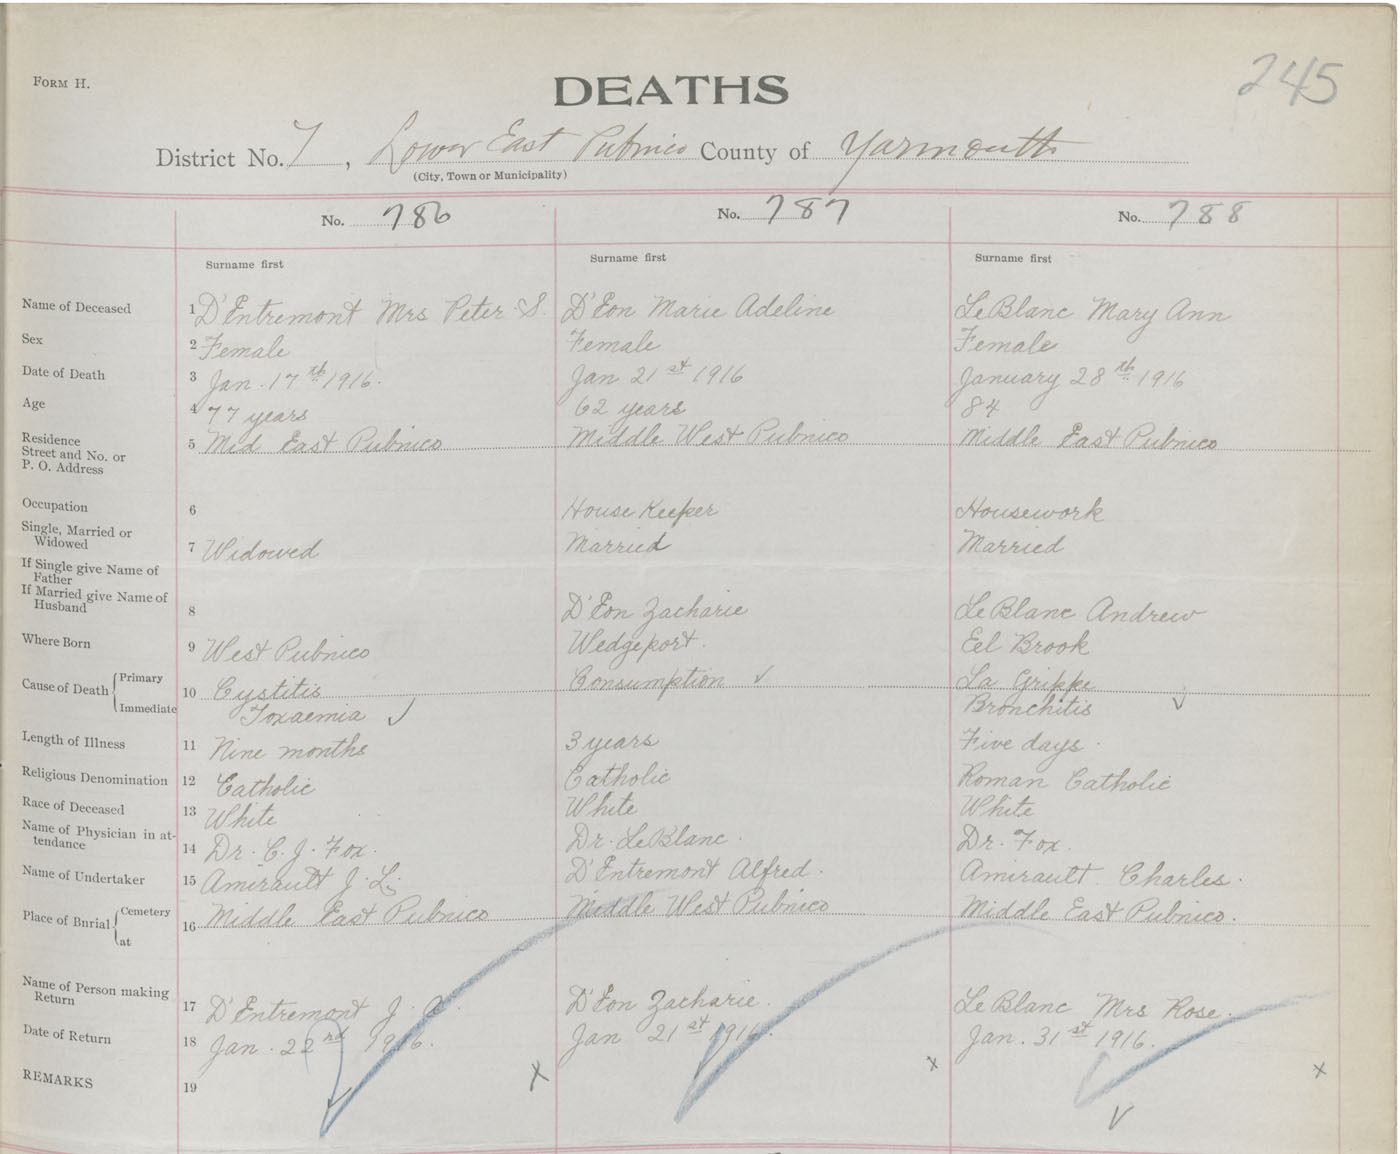 245
FORM H.
DEATHS
District No. 7, Lower East Pubnico County of Yarmouth
(City, Town or Municipality)
No. 786 No. 787 No. 788
Surname first Surname first Surname first
Name of Deceased 1 D'Entremont Mrs Peter S. D'Eon Marie Adeline LeBlanc Mary Ann
Sex 2 Female Female Female
Date of Death 3 Jan. 17th 1916. Jan 21st 1916 January 28th 1916
Age 4 77 years 62 years 84
Residence Street and No. or P. O. Address 5 Mid East Pubnico Middle West Pubnico Middle East Pubnico
Occupation 6 House Keeper Housework
Single, Married or Widowed 7 Widowed Married Married
If Single give Name of Father
If Married give Name of Husband 8 D'Eon Zacharie LeBlanc Andrew
Where Born 9 West Pubnico Wedgeport. Eel Brook
Cause of Death Primary 10 Cystitis Consumption ✓ La Grippe
Immediate Toxaemia ✓ Bronchitis ✓
Length of Illness 11 Nine months 3 years Five days.
Religious Denomination 12 Catholic Catholic Roman Catholic
Race of Deceased 13 White White White
Name of Physician in attendance 14 Dr. C. J. Fox. Dr. LeBlanc. Dr. Fox.
Name of Undertaker 15 Amirault J. L. D'Entremont Alfred. Amirault Charles.
Place of Burial Cemetery at 16 Middle East Pubnico Middle West Pubnico Middle East Pubnico.
Name of Person making Return 17 D'Entremont J. D'Eon Zacharie. LeBlanc Mrs Rose.
Date of Return 18 Jan. 22nd 1916. Jan 21st 1916. Jan. 31st 1916.
REMARKS 19 x x x